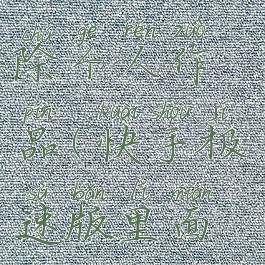 chú gè rén zuò
除个人作
pǐn kuài shǒu jí
品(快手极
sù bǎn lǐ miàn
速版里面